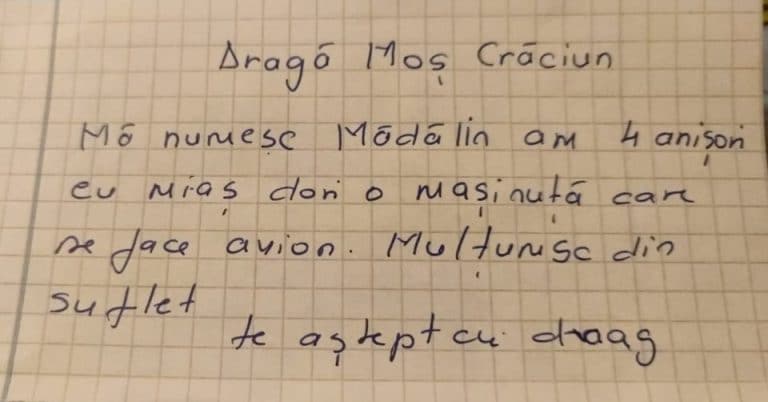 Dragă Moș Crăciun
Mă numesc Mădălin am 4 anișori
eu miaș dori o mașinuță care
se face avion. Mulțumsc din
suflet
te aștept cu draag